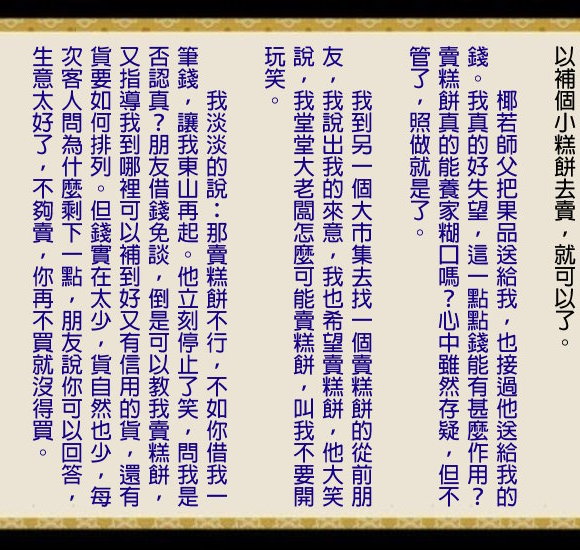 以補個小糕餅去賣，就可以了。
椰若師父把果品送給我，也接過他送給我的
錢。我真的好失望，這一點點錢能有甚麼作用？
賣糕餅真的能養家糊口嗎？心中雖然存疑，但不
管了，照做就是了。
我到另一個大市集去找一個賣糕餅的從前朋
友，我說出我的來意，我也希望賣糕餅，他大笑
說，我堂堂大老闆怎麼可能賣糕餅，叫我不要開
玩笑。
我淡淡的說：那賣糕餅不行，不如你借我一
筆錢，讓我東山再起。他立刻停止了笑，問我是
否認真？朋友借錢免談，倒是可以教我賣糕餅，
又指導我到哪裡可以補到好又有信用的貨，還有
貨要如何排列。但錢實在太少，貨自然也少，每
次客人問為什麼剩下一點，朋友說你可以回答，
生意太好了，不夠賣，你再不買就沒得買。